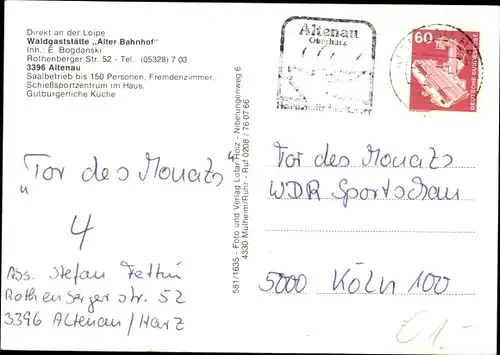 Direkt an der Loipe
Waldgaststätte „Alter Bahnhof"
Inh.: E. Bogdanski
Rothenberger Str. 52 - Tel. (05328) 7 03
3396 Altenau
Saalbetrieb bis 150 Personen, Fremdenzimmer.
Schießsportzentrum im Haus.
Gutbürgerliche Küche
„Tor des Monats"
4
Abs. Stefan
Rothenberger Str. 52
3396 Altenau/Harz
581/1635 - Foto und Verlag Lotar Holz - Nibelungenweg 6
4330 Mülheim/Ruhr - Ruf 0208 / 76 07 66
Altenau
Oberharz
60
DEUTSCHE BUNDESPOST
Tor des Monats
WDR Sportschau
5000 Köln 100